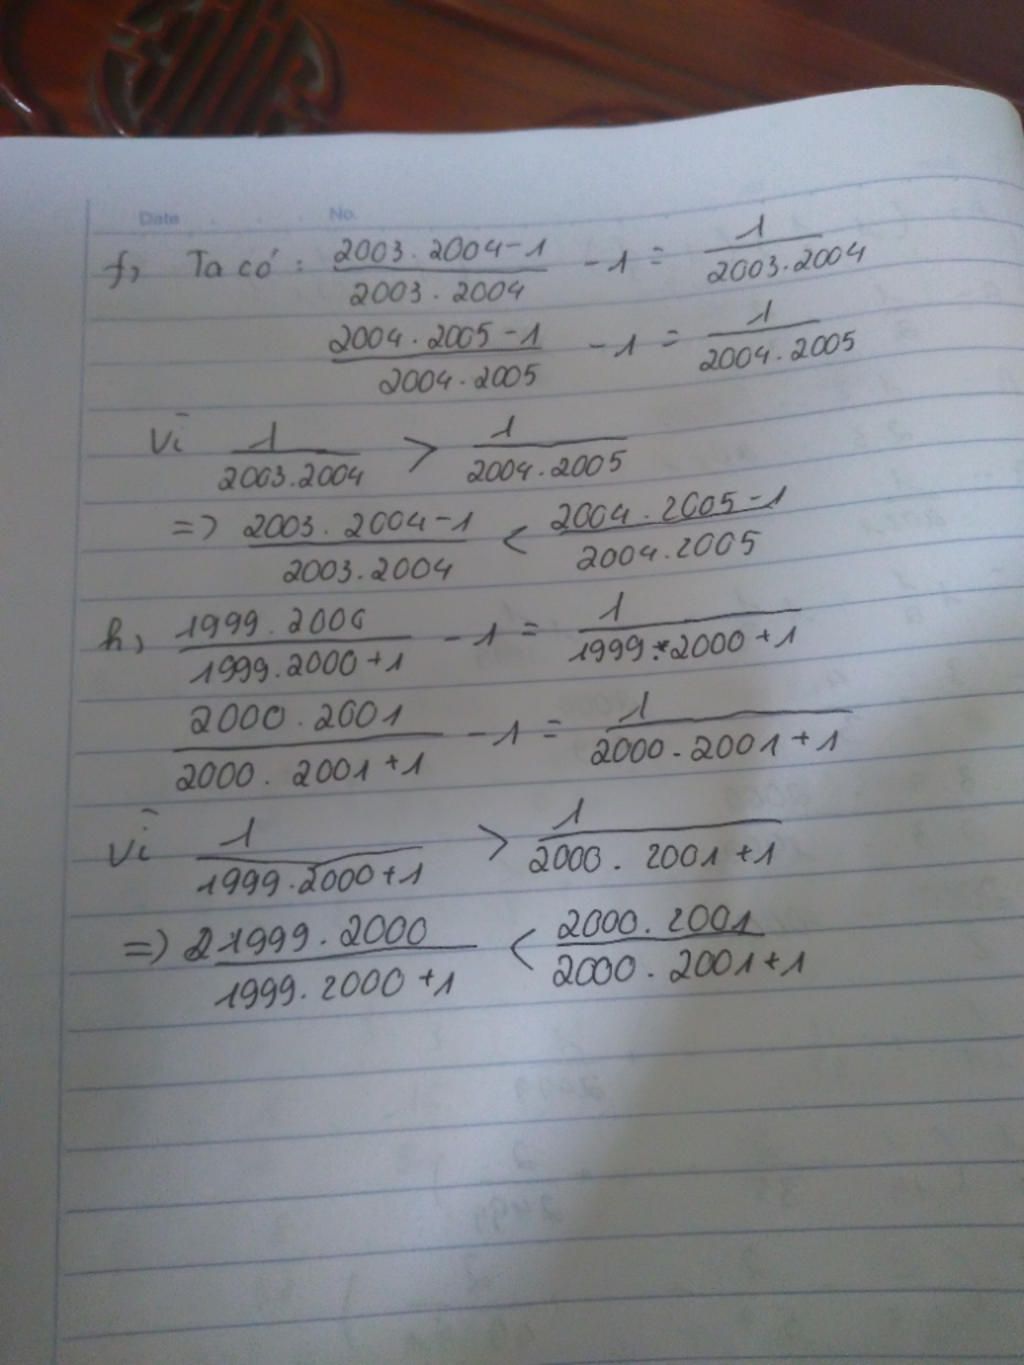 Date No.
f, Ta có: \frac{2003.2004-1}{2003.2004} - 1 = \frac{1}{2003.2004}
\frac{2004.2005-1}{2004.2005} - 1 = \frac{1}{2004.2005}
Vì \frac{1}{2003.2004} > \frac{1}{2004.2005}
=> \frac{2003.2004-1}{2003.2004} < \frac{2004.2005-1}{2004.2005}
h, \frac{1999.2000}{1999.2000+1} - 1 = \frac{1}{1999.2000+1}
\frac{2000.2001}{2000.2001+1} - 1 = \frac{1}{2000.2001+1}
Vì \frac{1}{1999.2000+1} > \frac{1}{2000.2001+1}
=> \frac{1999.2000}{1999.2000+1} < \frac{2000.2001}{2000.2001+1}